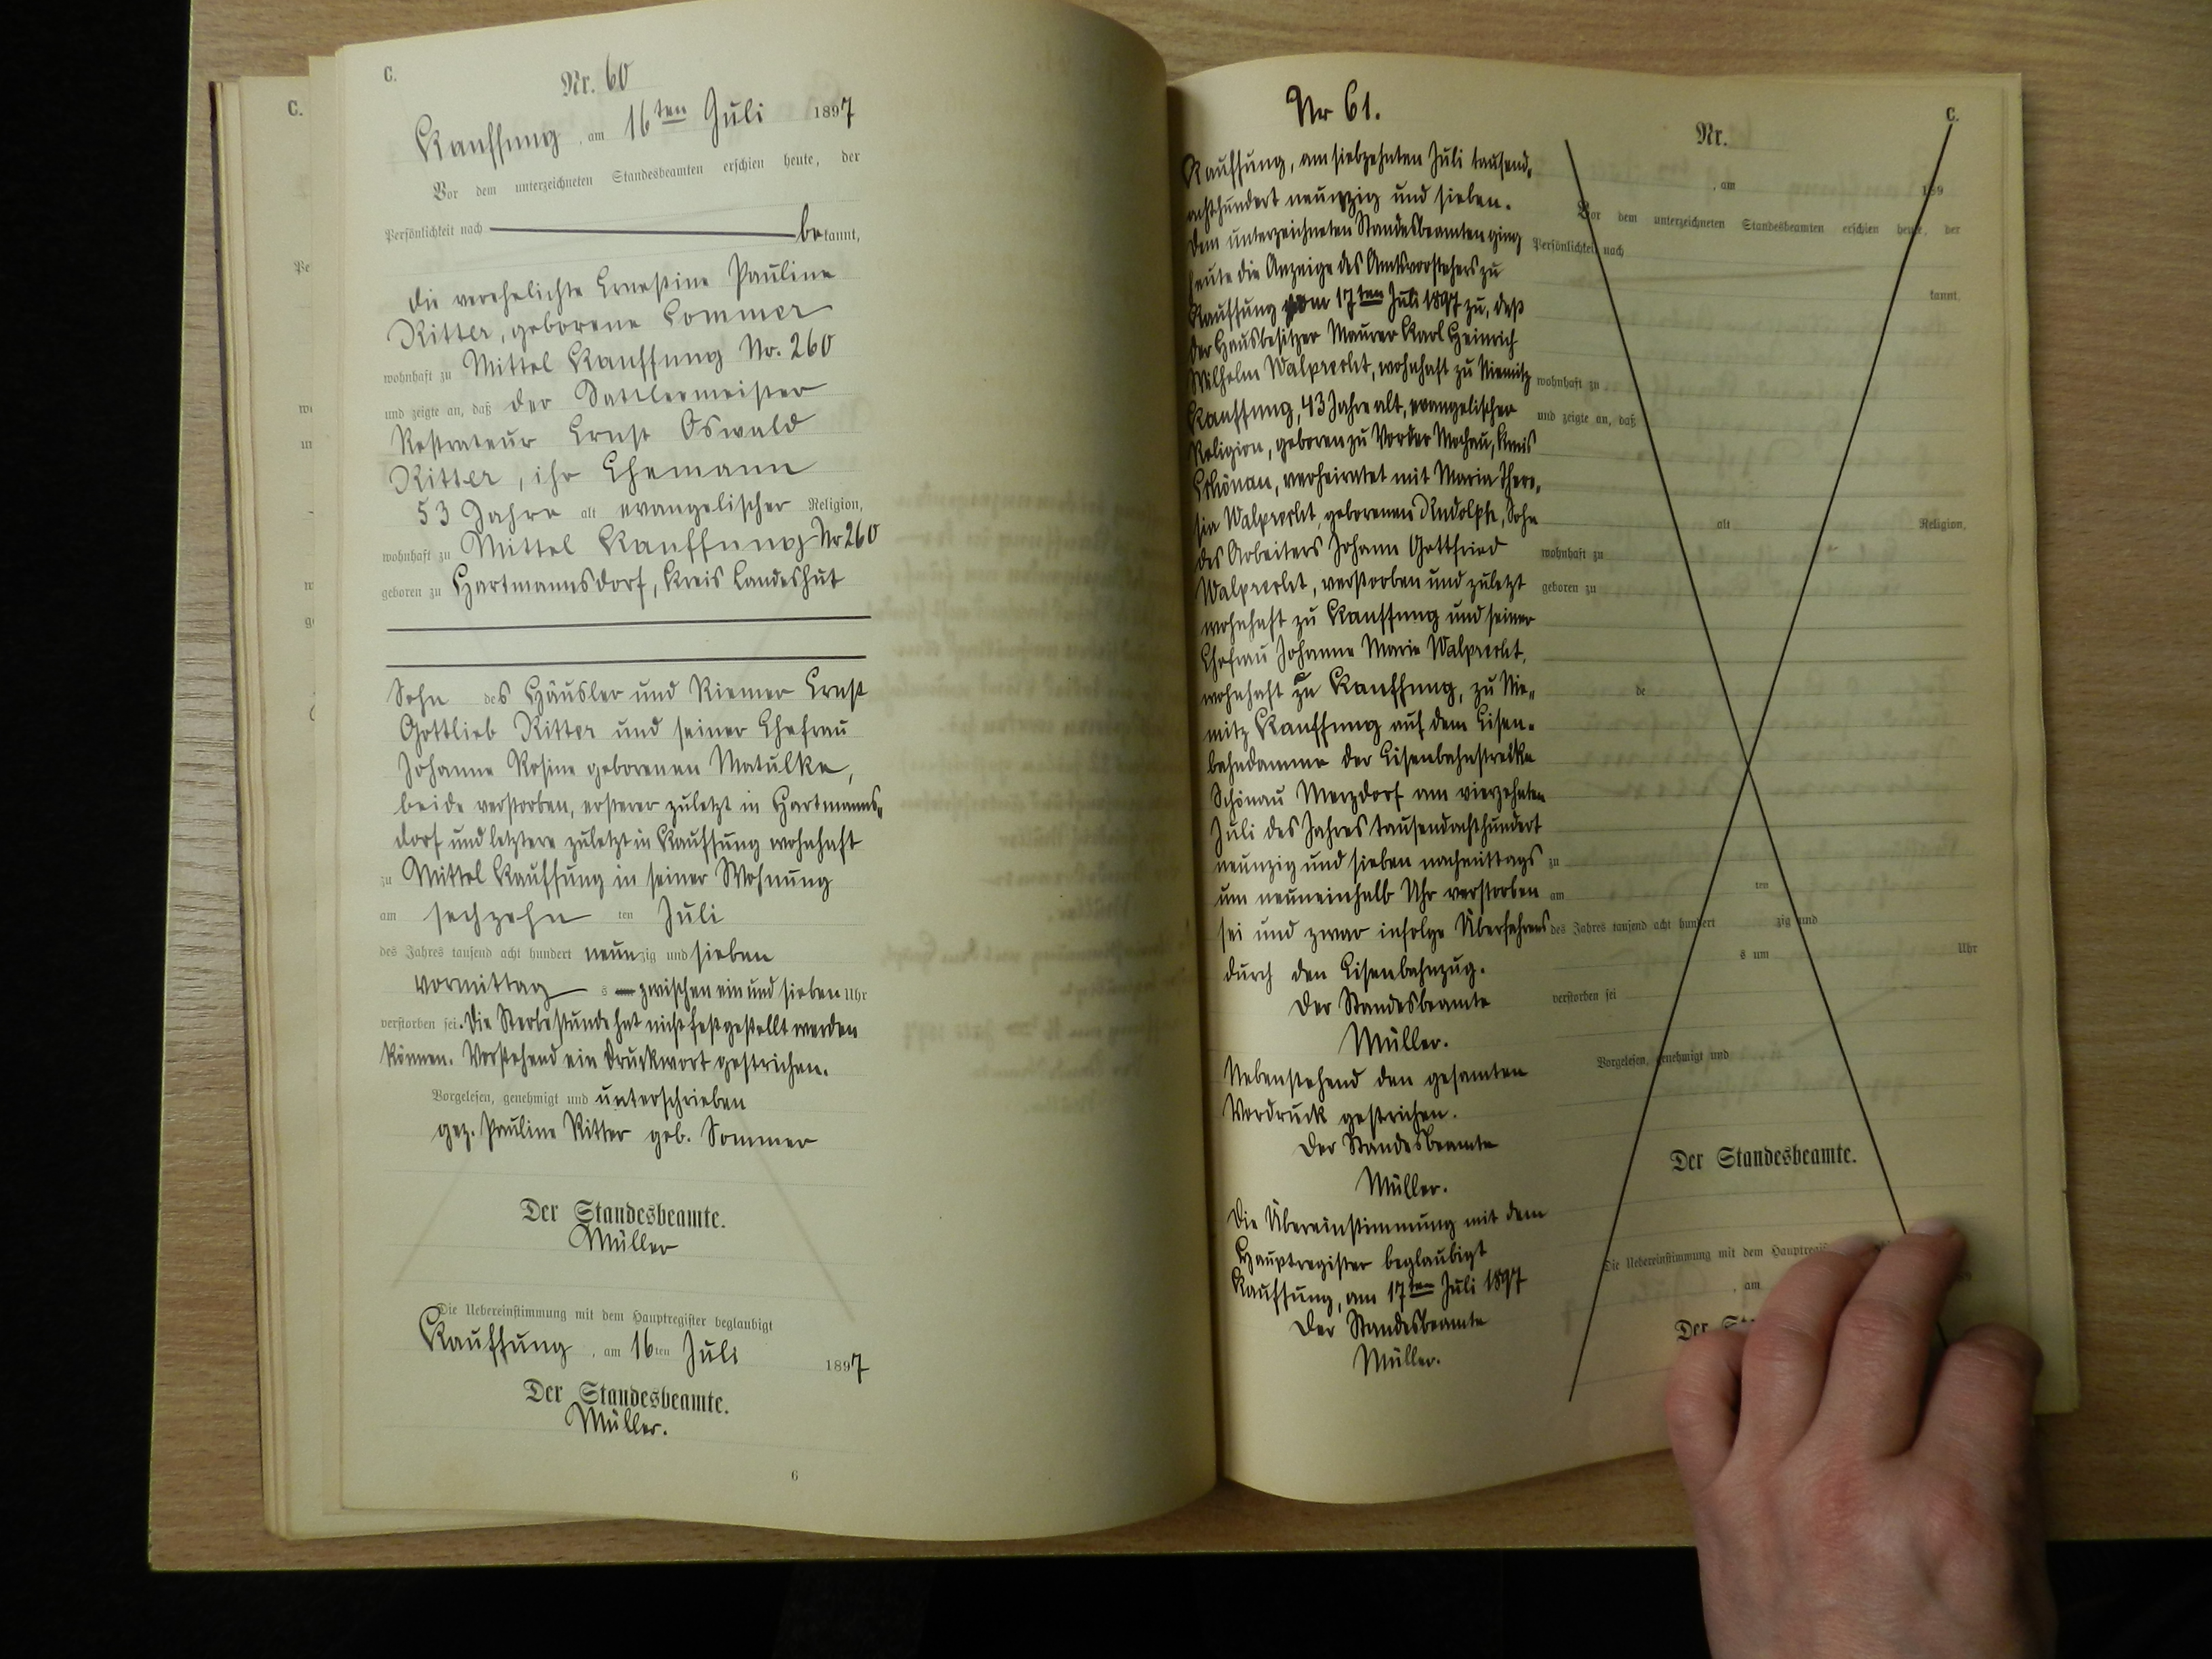 C.
Nr. 60
Kauffung, am 16ten Juli 1897
Vor dem unterzeichneten Standesbeamten erschien heute, der
Persönlichkeit nach bekannt,
die verehelichte Ernestine Pauline
Ritter, geborene Sommer
wohnhaft zu Mittel Kauffung Nr. 260
und zeigte an, daß der Sattlermeister
Restrateur Ernst Oswald
Ritter, ihr Ehemann
53 Jahre alt evangelischer Religion,
wohnhaft zu Mittel Kauffung Nr 260
geboren zu Hartmannsdorf, Kreis Landeshut
Sohn des Häusler und Riemer Ernst
Gottlieb Ritter und seiner Ehefrau
Johanne Rosine geborenen Matulke,
beide verstorben, ersterer zuletzt in Hartmanns„
dorf und letztere zuletzt in Kauffung wohnhaft
zu Mittel Kauffung in seiner Wohnung
am sechzehn ten Juli
des Jahres tausend acht hundert neunzig und sieben
vormittags zwischen ein und sieben Uhr
verstorben sei. Die Sterbestunde hat nicht festgestellt werden
können. Vorstehend ein Druckwort gestrichen.
Vorgelesen, genehmigt und unterschrieben
gez. Pauline Ritter geb. Sommer
Der Standesbeamte.
Müller
Die Uebereinstimmung mit dem Hauptregister beglaubigt
Kauffung, am 16ten Juli 1897
Der Standesbeamte.
Müller.
6
C.
Nr 61.
Kauffung, am siebzehnten Juli tausend„
achthundert neunzig und sieben.
Dem unterzeichneten Standesbeamten ging
heute die Anzeige des Amtsvorstehers zu
Kauffung vom 17ten Juli 1897 zu, daß
der Hausbesitzer Maurer Karl Heinrich
Wilhelm Walprecht, wohnhaft zu Niemitz
Kauffung, 43 Jahre alt, evangelischer
Religion, geboren zu Vorder Mochau, Kreis
Schönau, verheiratet mit Maria There„
sia Walprecht, geborenen Rudolph, Sohn
des Arbeiters Johann Gottfried
Walprecht, verstorben und zuletzt
wohnhaft zu Kauffung und seiner
Ehefrau Johanne Marie Walprecht,
wohnhaft zu Kauffung, zu Nie„
mitz Kauffung auf dem Eisen„
bahndamme der Eisenbahnstrecke
Schönau Merzdorf am vierzehnten
Juli des Jahres tausendachthundert
neunzig und sieben nachmittags
um neuneinhalb Uhr verstorben
sei und zwar infolge Überfahrens
durch den Eisenbahnzug.
Der Standesbeamte
Müller.
Nebenstehend den gesamten
Vordruck gestrichen.
Der Standesbeamte
Müller.
Die Übereinstimmung mit dem
Hauptregister beglaubigt
Kauffung, am 17ten Juli 1897
Der Standesbeamte
Müller.
C.
Nr.
, am 189
Vor dem unterzeichneten Standesbeamten erschien heute, der
Persönlichkeit nach
kannt,
wohnhaft zu
und zeigte an, daß
alt Religion,
wohnhaft zu
geboren zu
de
zu
am ten
des Jahres tausend acht hundert zig und
s um Uhr
verstorben sei
Vorgelesen, genehmigt und
Der Standesbeamte.
Die Uebereinstimmung mit dem
, am
Der